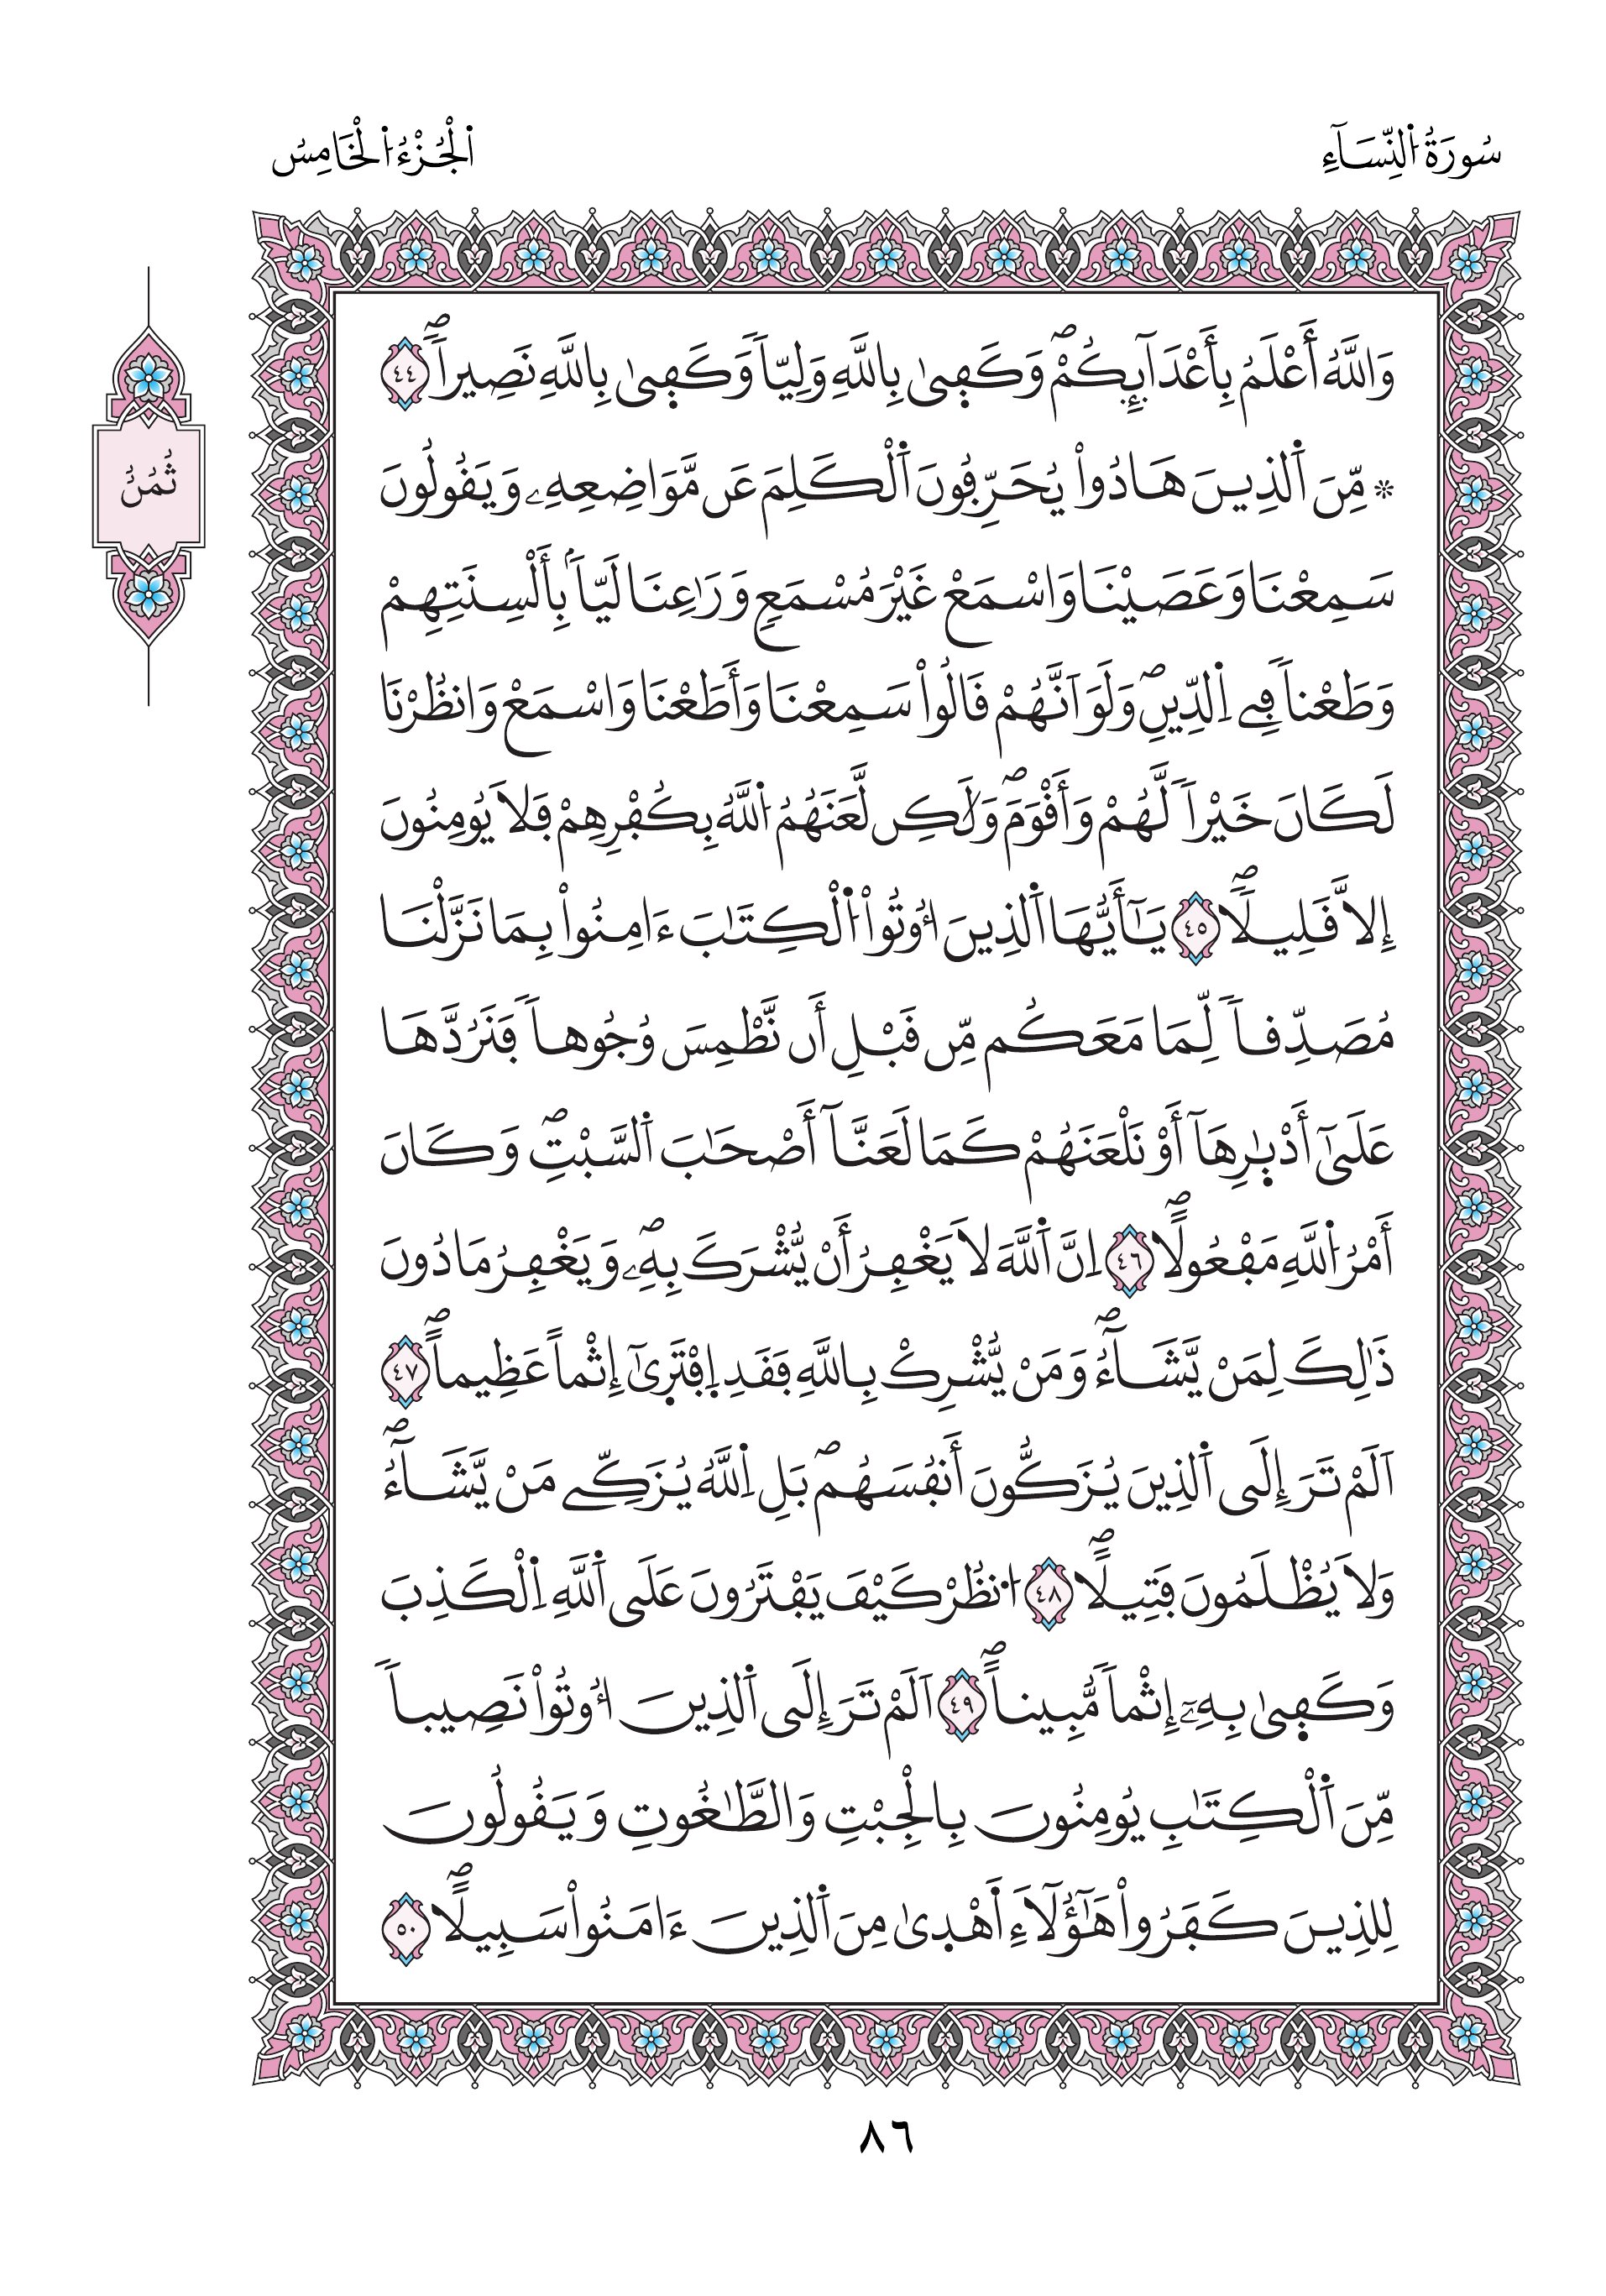 سُورَةُ اُ۬لنِّسَآءِ
اَ۬لْجُزْءُ اُ۬لْخَامِسُ
ثُمُنُ
وَاللَّهُ أَعْلَمُ بِأَعْدَآئِكُمْۖ وَكَفَىٰ بِاللَّهِ وَلِيّاٗ وَكَفَىٰ بِاللَّهِ نَصِيراٗۖ ٤٤
* مِّنَ اَ۬لذِينَ هَادُواْ يُحَرِّفُونَ اَ۬لْكَلِمَ عَن مَّوَاضِعِهِۦ وَيَقُولُونَ
سَمِعْنَا وَعَصَيْنَا وَاسْمَعْ غَيْرَ مُسْمَعٖ وَرَٰعِنَا لَيّاَۢ بِأَلْسِنَتِهِمْ
وَطَعْناٗ فِے اِ۬لدِّينِۖ وَلَوَ اَنَّهُمْ قَالُواْ سَمِعْنَا وَأَطَعْنَا وَاسْمَعْ وَانظُرْنَا
لَكَانَ خَيْراٗ لَّهُمْ وَأَقْوَمَۖ وَلَٰكِن لَّعَنَهُمُ اُ۬للَّهُ بِكُفْرِهِمْ فَلَا يُومِنُونَ
إِلَّا قَلِيلاٗۖ ٤٥ يَٰٓأَيُّهَا اَ۬لذِينَ أُوتُواْ اُ۬لْكِتَٰبَ ءَامِنُواْ بِمَا نَزَّلْنَا
مُصَدِّقاٗ لِّمَا مَعَكُم مِّن قَبْلِ أَن نَّطْمِسَ وُجُوهاٗ فَنَرُدَّهَا
عَلَىٰٓ أَدْبَٰرِهَآ أَوْ نَلْعَنَهُمْ كَمَا لَعَنَّآ أَصْحَٰبَ اَ۬لسَّبْتِۖ وَكَانَ
أَمْرُ اُ۬للَّهِ مَفْعُولاًۖ ٤٦ اِنَّ اَ۬للَّهَ لَا يَغْفِرُ أَنْ يُّشْرَكَ بِهِۦۖ وَيَغْفِرُ مَا دُونَ
ذَٰلِكَ لِمَنْ يَّشَآءُۖ وَمَنْ يُّشْرِكْ بِاللَّهِ فَقَدِ اِ۪فْتَرَىٰٓ إِثْماً عَظِيماًۖ ٤٧
اَلَمْ تَرَ إِلَى اَ۬لذِينَ يُزَكُّونَ أَنفُسَهُمۖ بَلِ اِ۬للَّهُ يُزَكِّے مَنْ يَّشَآءُۖ
وَلَا يُظْلَمُونَ فَتِيلاًۖ ٤٨ اُ۟نظُرْ كَيْفَ يَفْتَرُونَ عَلَى اَ۬للَّهِ اِ۬لْكَذِبَ
وَكَفَىٰ بِهِۦٓ إِثْماٗ مُّبِيناًۖ ٤٩ اَلَمْ تَرَ إِلَى اَ۬لذِينَ أُوتُواْ نَصِيباٗ
مِّنَ اَ۬لْكِتَٰبِ يُومِنُونَ بِالْجِبْتِ وَالطَّٰغُوتِ وَيَقُولُونَ
لِلذِينَ كَفَرُواْ هَٰٓؤُلَآءِ اَهْدَىٰ مِنَ اَ۬لذِينَ ءَامَنُواْ سَبِيلاًۖ ٥٠
٨٦